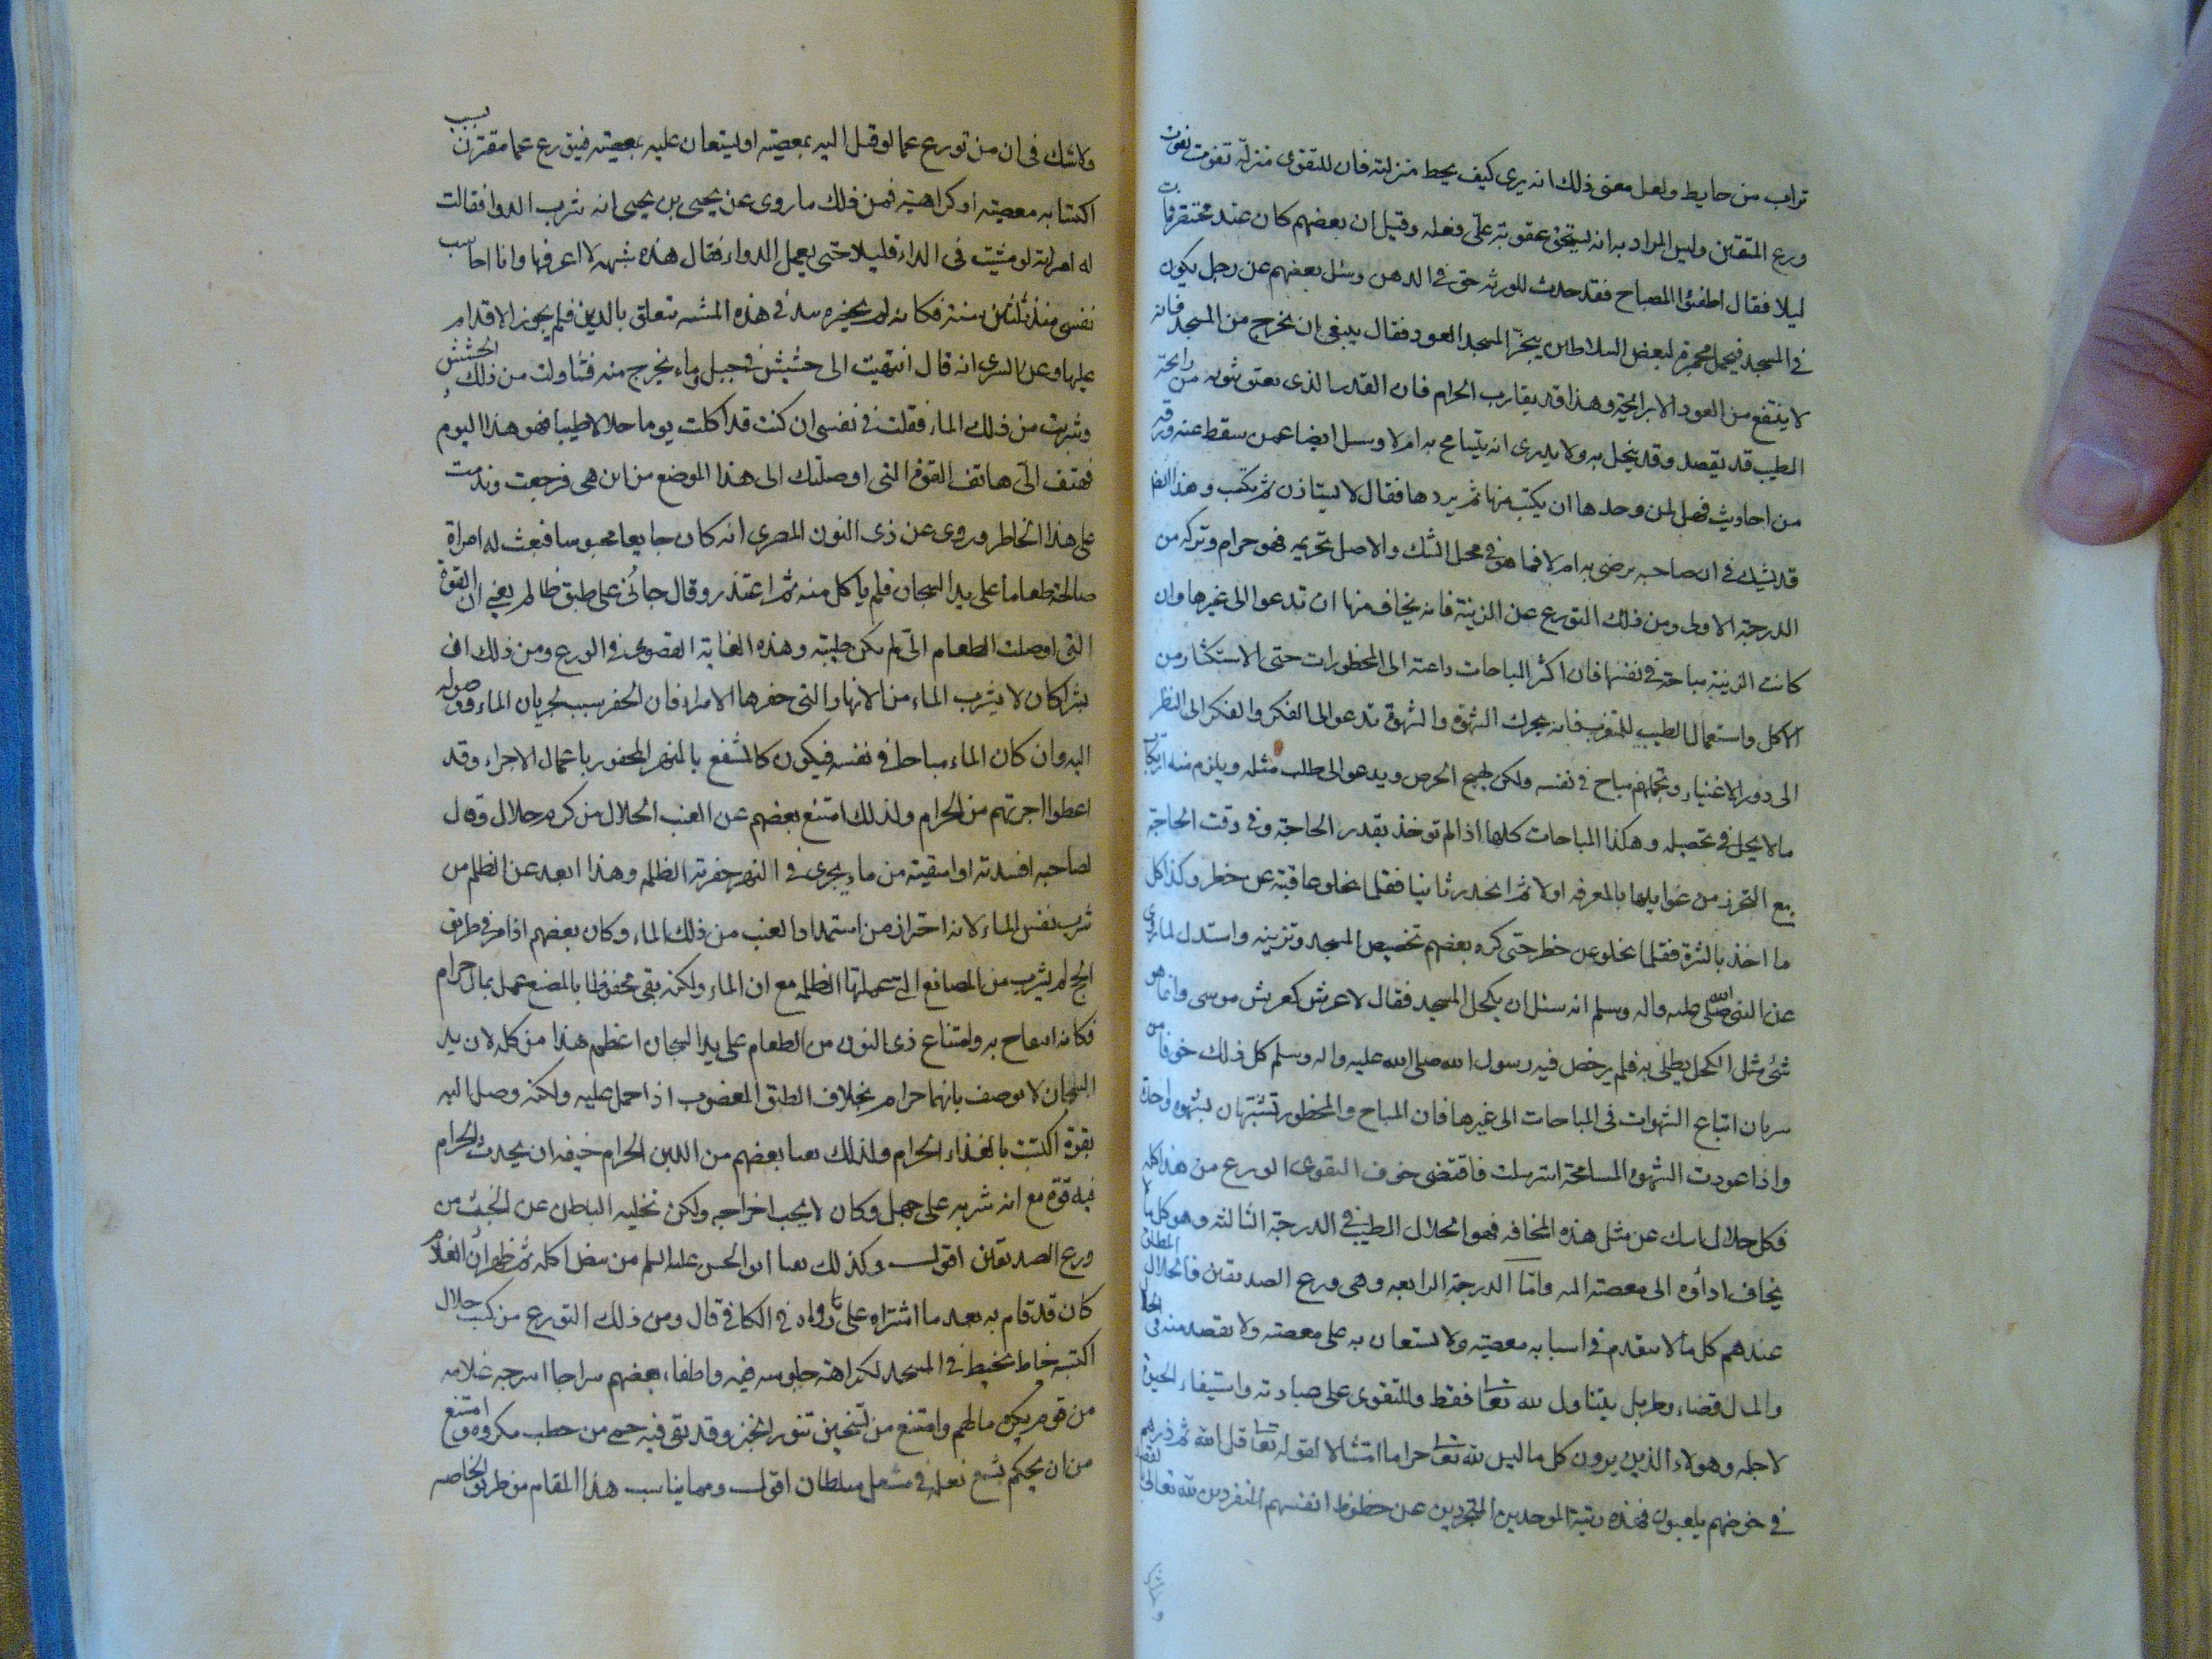 تراب من حايط ولعل معنى ذلك انه يرى كيف يحط منزلته فان للتقوى منزلة تفوت بفوت
ورع المتقين وليس المراد به انه يستحق عقوبته على فعله وقيل ان بعضهم كان عند محتضر فمات
ليلا فقال اطفئوا المصباح فقد حدث للورثه حق في الدهن وسئل بعضهم عن رجل يكون
في المسجد فيحمل مجمرة لبعض السلاطين يبخر المسجد العود فقال ينبغي ان يخرج من المسجد فانه
لا ينتفع من العود الا برائحته وهذا قد يقارب الحرام فان القدر الذى يعبق بثوبه من رائحة
الطيب قد يقصد وقد يبخل به ولا يدرى انه يتسامح به ام لا وسئل ايضا عمن سقط عنه ورقه
من احاديث فهل لمن وجدها ان يكتب منها ثم يردها فقال لا ليستاذن ثم يكتب وهذا ايضا
قد يشك في ان صاحبه يرضى به ام لا فما هو في محل الشك والاصل تحريمه فهو حرام وتركه من
الدرجة الاولى ومن ذلك التورع عن الزينة فانه يخاف منها ان تدعو الى غيرها وان
كانت الزينة مباحة في نفسها فان اكثر المباحات داعية الى المحظورات حتى الاستكثار من
الاكل واستعمال الطيب للمتعزب فانه يحرك الشهوة والشهوة تدعو الى الفكر والفكر الى النظر
الى دور الاغنياء وتجملهم مباح في نفسه ولكن يهيج الحرص ويدعو الى طلب مثله ويلزم منه ارتكاب
ما لا يحل في تحصيله وهكذا المباحات كلها اذا لم توخذ بقدر الحاجة وفي وقت الحاجة
مع التحرز من غوايلها بالمعرفه اولا ثم الحذر ثانيا فقلما يخلو عاقبته عن خطر وكذا كل
ما اخذ بالشهوة فقلما يخلو عن خطر حتى كره بعضهم تخصيص المسجد وتزيينه واستدل لما روى
عن النبى صلى الله عليه واله وسلم انه سئل ان يكحل المسجد فقال لا عرش كعريش موسى وانما هو
شئ مثل الكحل يطلى به فلم يرخص فيه رسول الله صلى الله عليه واله وسلم كل ذلك خوفا من
سريان اتباع الشهوات في المباحات الى غيرها فان المباح والمحظور تشتهيان بشهوة واحدة
واذا عودت الشهوة المسامحة استرسلت فاقتضى خوف التقوى الورع من هذا كله
فكل حلال انفك عن مثل هذه المخافه فهو الحلال الطيب في الدرجة الثالثه وهو كل ما لا
يخاف اداؤه الى معصية البته واما الدرجة الرابعه وهى ورع الصديقين فالحلال المطلق
عندهم كل ما لا يتقدم في اسبابه معصية ولا يستعان به على معصيته ولا يقصد منه في الحال
والمال قضاء وطر بل يتناول لله تعا فقط وللتقوى على عبادته واستبقاء الحيوة
لاجله وهولاء الذين يرون كل ما ليس لله تعا حراما امتثالا لقوله تعا قل الله ثم ذرهم
في خوضهم يلعبون فهذه رتبة الموحدين المتجردين عن حظوظ انفسهم المنفردين لله تعالى بالقصد
ولا شك في ان من تورع عما يوصل اليه بمعصيته او يستعان عليه بمعصيته فيتورع عما يقترن بسبب
اكتسابه معصية او كراهية فمن ذلك ما روى عن يحيى بن يحيى انه شرب الدوا فقالت
له امراته لو مشيت في الدار قليلا حتى يعمل الدواء فقال هذه مشيه لا اعرفها وانا احاسب
نفسي منذ ثلثين سنة فكانه لم يحضره نيه في هذه المشيه تتعلق بالدين فلم يجوز الاقدام
عليها وعن السرى انه قال انتهيت الى حشيش في جبل وماء يخرج منه فتناولت من ذلك الحشيش
وشربت من ذلك الماء فقلت في نفسي ان كنت قد اكلت يوما حلالا طيبا فهو هذا اليوم
فهتف الى هاتف القوة التى اوصلتك الى هذا الموضع من اين هى فرجعت وندمت
على هذا الخاطر وروى عن ذى النون المصرى انه كان جايعا محبوسا فبعث له امراة
صالحة طعاما على يد السجان فلم ياكل منه ثم اعتذر وقال جائنى على طبق ظالم يعني ان القوة
التى اوصلت الطعام الى لم تكن طيبته وهذه الغاية القصوى في الورع ومن ذلك ان
بشرا كان لا يشرب الماء من الانهار التى حفرها الامراء فان الحفر سبب لجريان الماء ووصوله
اليه وان كان الماء مباحا في نفسه فيكون كالمنتفع بالنهر المحفور باعمال الاجراء وقد
اعطوا اجرتهم من الحرام ولذلك امتنع بعضهم عن العنب الحلال من كرم حلال وقال
لصاحبه افسدته اذ اسقيته من ماء يجرى في النهر حفرته الظلمه وهذا ابعد عن الظلم من
شرب نفس الماء لانه احتراز من استمداد العنب من ذلك الماء وكان بعضهم اذا مر في طريق
الحج لم يشرب من المصانع التى عملتها الظلمه مع ان الماء ولكنه بقى محفوظا بالمصنع عمل بمال حرام
فكانه انتفاع به وامتناع ذى النون من الطعام على يد السجان اعظم هذا من كله لان يد
السجان لا يوصف بانها حرام بخلاف الطبق المغصوب اذا حمل عليه ولكنه وصل اليه
بقوة اكتسبت بالغذاء الحرام ولذلك تقيا بعضهم من اللبن الحرام خيفه ان يحدث الحرام
فيه قوة مع انه شربه على جهل وكان لا يجب اخراجه ولكن تخليه الباطن عن الخبث من
ورع الصديقين اقول وكذلك تقيا ابو الحسن عليه السلم من بيض اكله ثم ظهر ان الغلام
كان قد قام به بعد ما اشتراه على ما رواه في الكافي قال ومن ذلك التورع من كسب حلال
اكتسبه خياط يخيط في المسجد لكراهة جلوسه فيه واطفاء بعضهم سراجا اسرجه غلامه
من قوم يكره مالهم وامتنع من تسخين تنور الخبز وقد بقى فيه جمر من حطب مكروه وامتنع
من ان يحكم شسع نعله في مشعل سلطان اقول ومما يناسب هذا المقام من طريق الخاصه